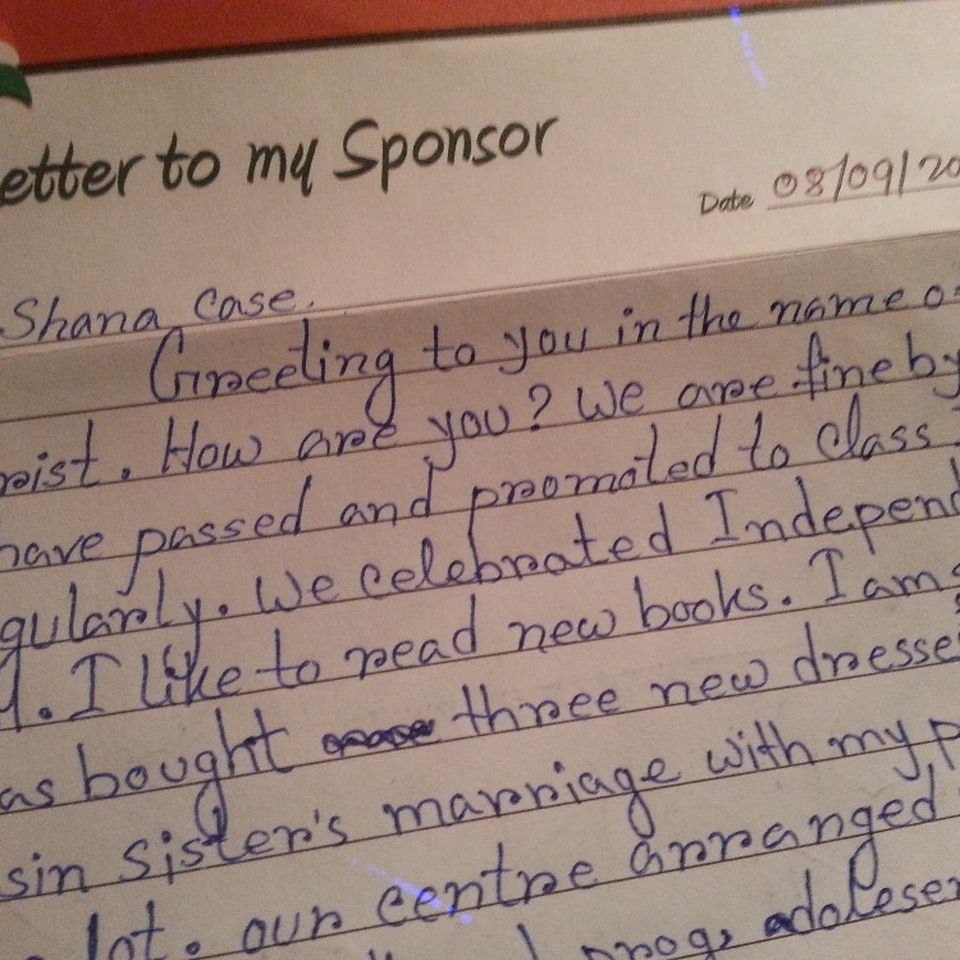 etter to my Sponsor
Date 08/09/20
Shana Case.
Greeting to you in the name o
rist. How are you? We are fine by
have passed and promoted to class
gularly. We celebrated Independ
I like to read new books. I am
as bought three new dresse
sin sister's marriage with my p
lot. our centre arranged
prog, adolesen